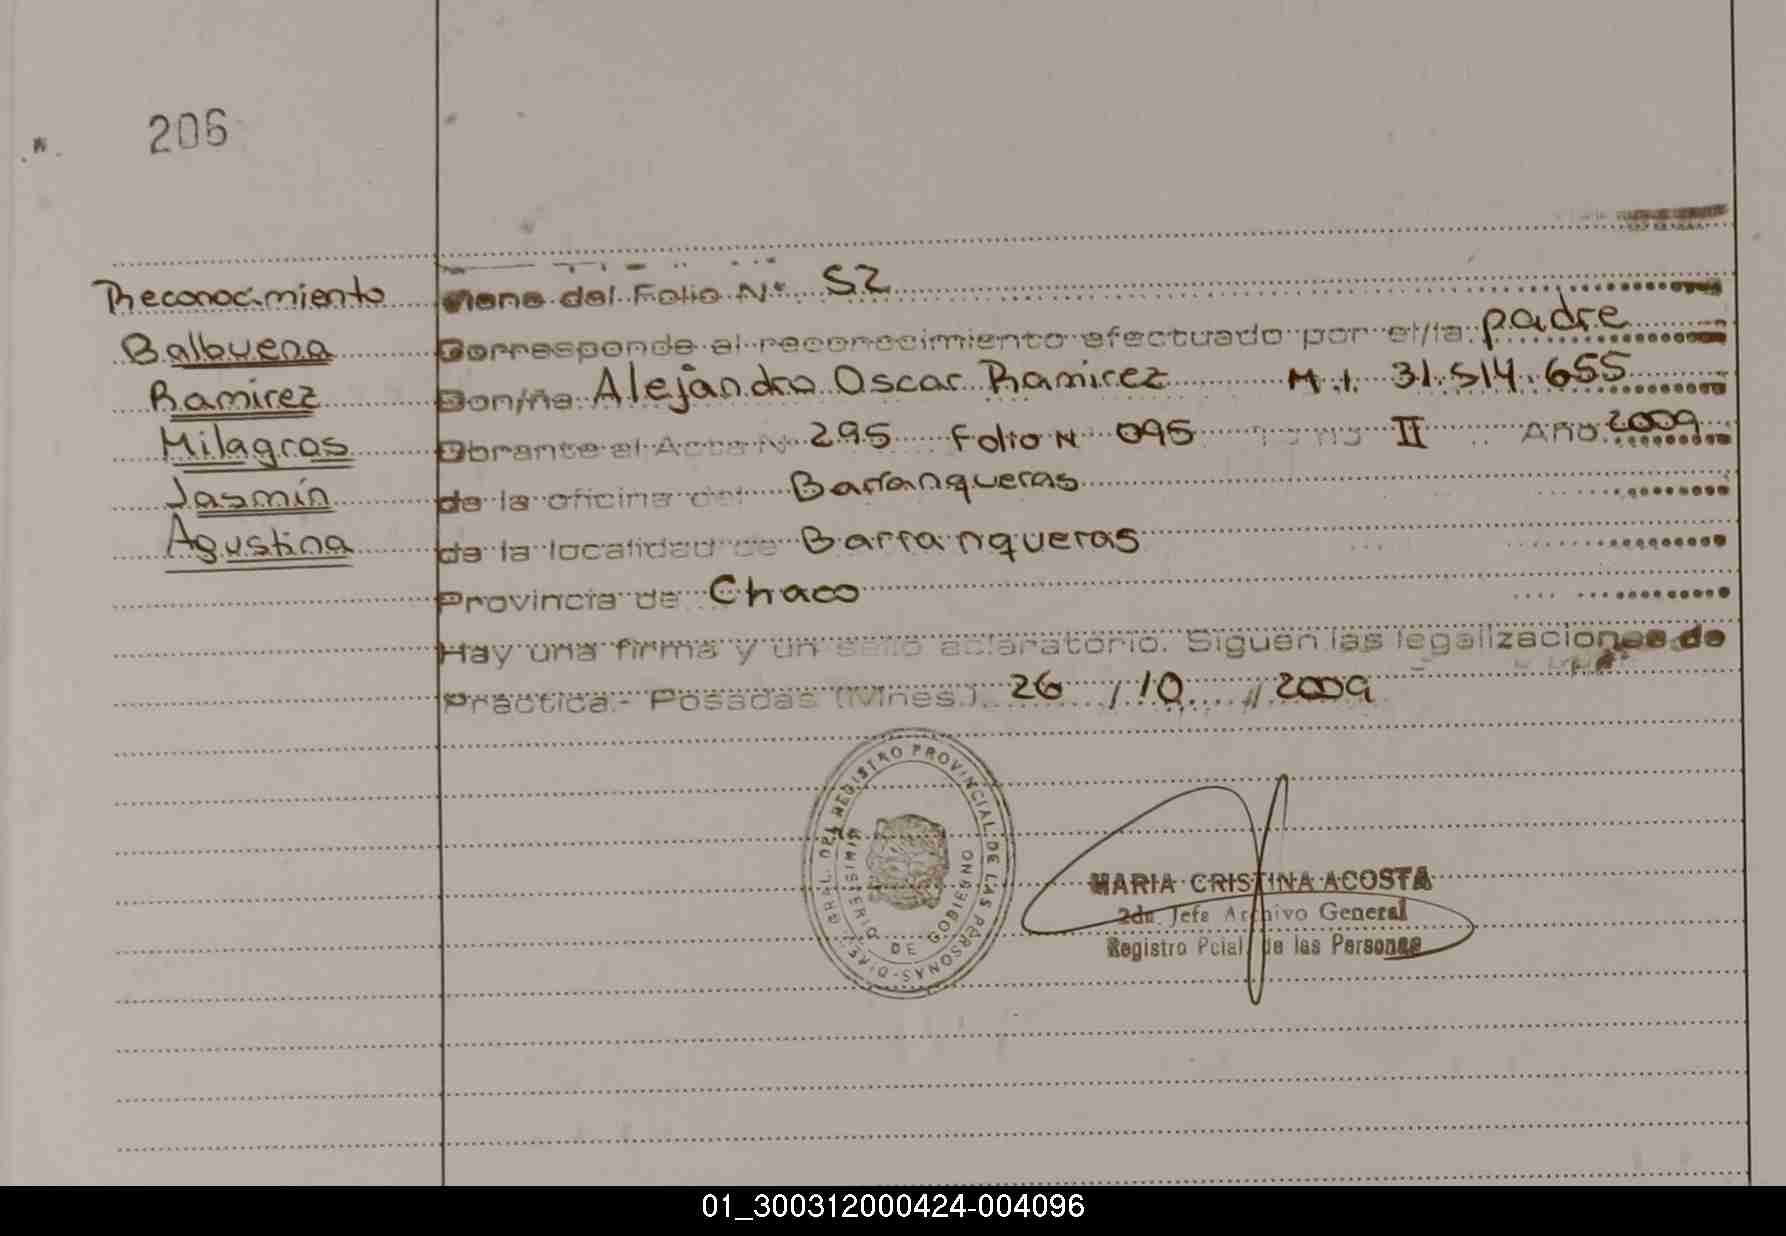 206
Reconocimiento
Balbuena
Ramirez
Milagros
Jasmín
Agustina
Viene del Folio Nº 52
Corresponde al reconocimiento efectuado por el/la padre
Don/ña Alejandro Oscar Ramirez M.I. 31.514.655
Obrante al Acta Nº 295 Folio N 095 Tomo II Año 2009
de la oficina del Barranqueras
de la localidad de Barranqueras
Provincia de Chaco
Hay una firma y un sello aclaratorio. Siguen las legalizaciones de
Práctica.- Posadas (Mnes.) 26 / 10 / 2009
GRAL. DEL REGISTRO PROVINCIAL DE LAS PERSONAS
MINISTERIO DE GOBIERNO
MARIA CRISTINA ACOSTA
2da. Jefe Archivo General
Registro Pcial. de las Personas
01_300312000424-004096